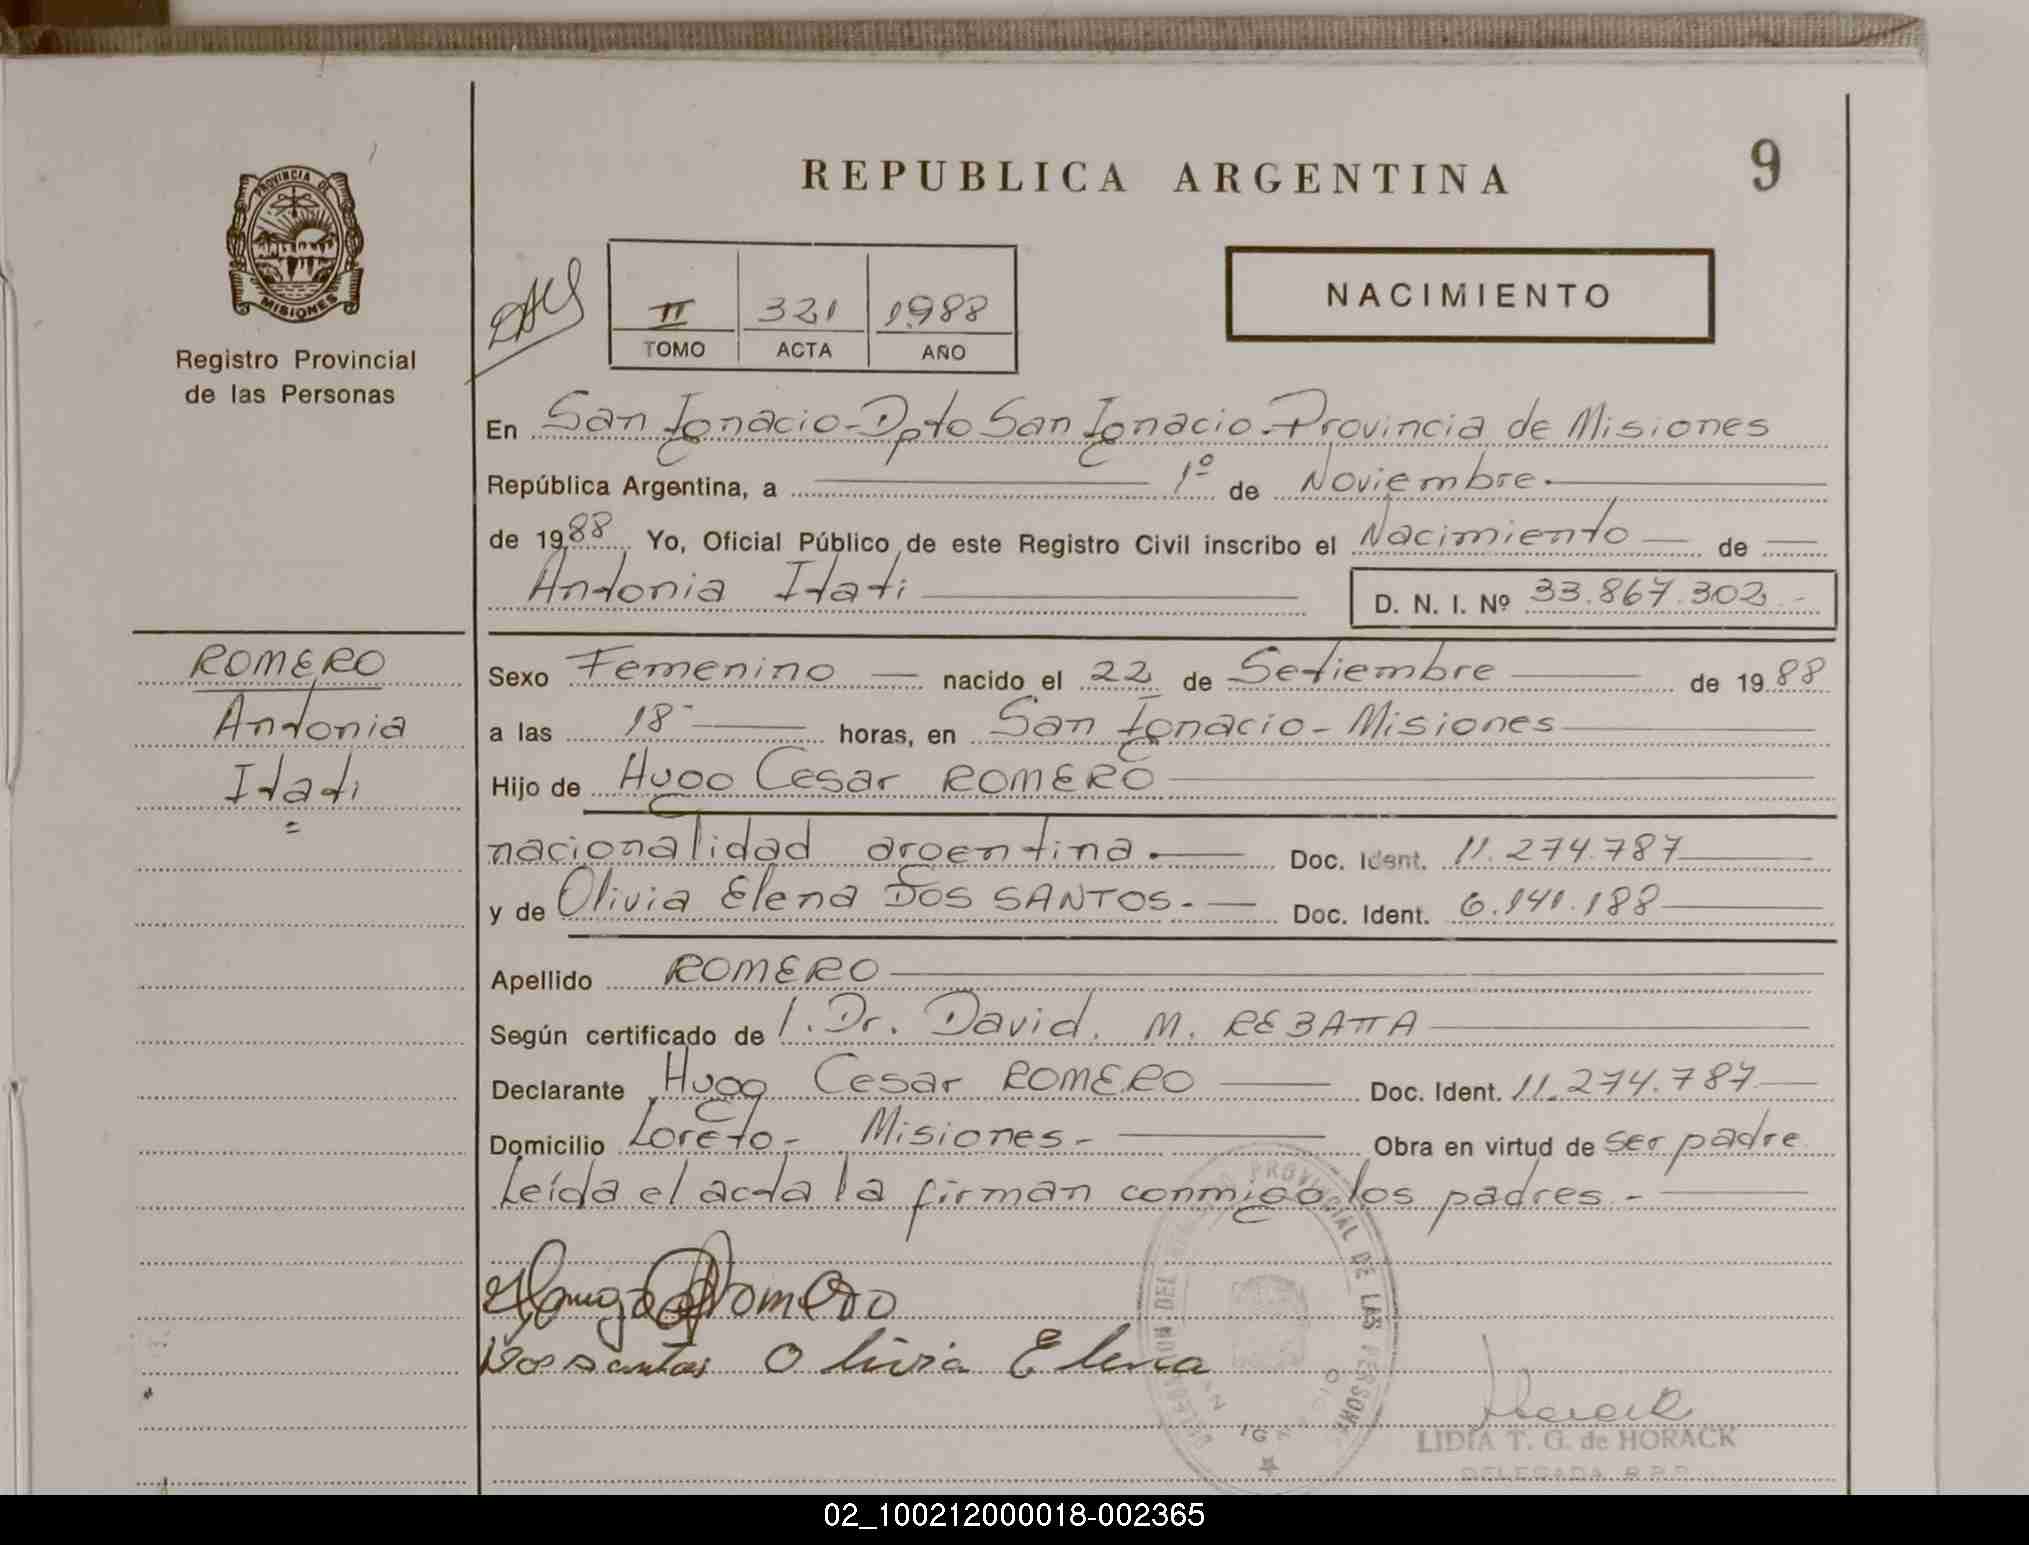 REPUBLICA ARGENTINA
9
PROVINCIA DE
MISIONES
Registro Provincial
de las Personas
II 321 1988
TOMO ACTA AÑO
NACIMIENTO
En San Ignacio - Dpto San Ignacio - Provincia de Misiones
República Argentina, a 1º de Noviembre.
de 1988 Yo, Oficial Público de este Registro Civil inscribo el Nacimiento de
Antonia Itati
D. N. I. Nº 33.867.302.-
ROMERO
Antonia
Itati
Sexo Femenino nacido el 22 de Setiembre de 1988
a las 18 horas, en San Ignacio - Misiones
Hijo de Hugo Cesar ROMERO
nacionalidad argentina. Doc. Ident. 11.274.787
y de Olivia Elena DOS SANTOS.- Doc. Ident. 6.141.188
Apellido ROMERO
Según certificado de Dr. David. M. REBATTA
Declarante Hugo Cesar ROMERO Doc. Ident. 11.274.787
Domicilio Loreto - Misiones - Obra en virtud de ser padre
Leída el acta la firman conmigo los padres.-
Romero
Dos santos Olivia Elena
PROVINCIAL DE LAS PERSON
LIDIA T. G. de HORACK
DELEGADA R.P.P.
02_100212000018-002365